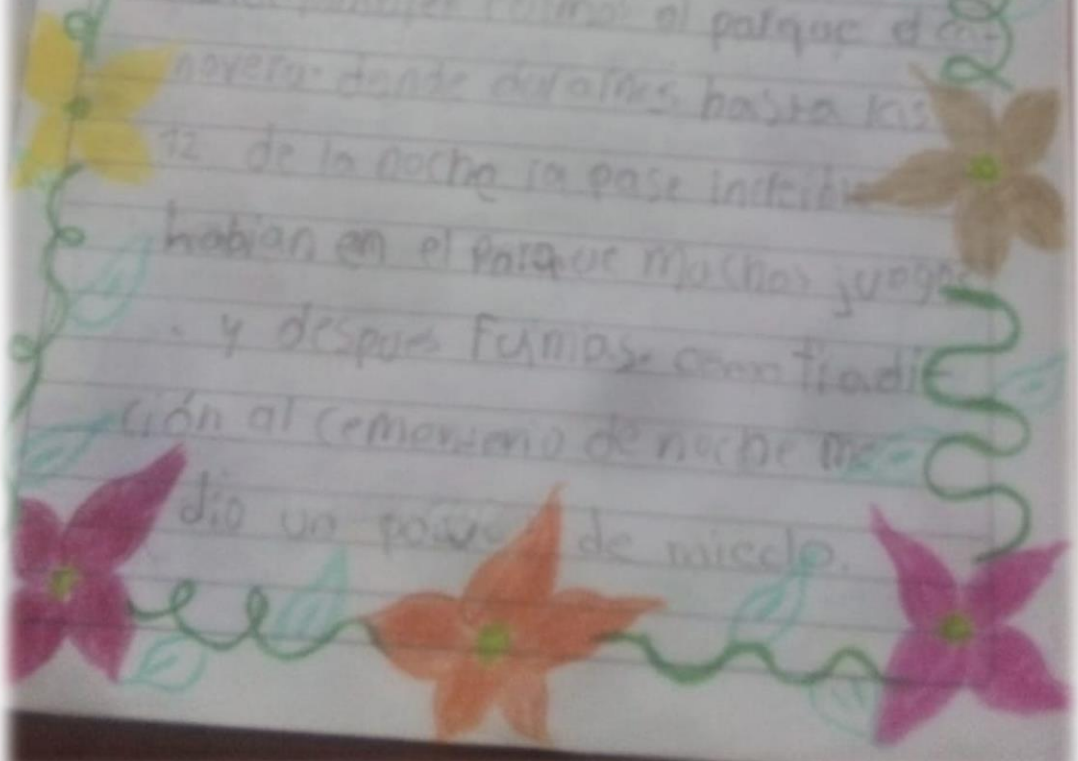 al parque
donde duramos hasta las
12 de la noche la pase
habian en el parque muchos juegos
y despues Fuimos como tradi
ción al cementerio de noche me
dio un poco de miedo.